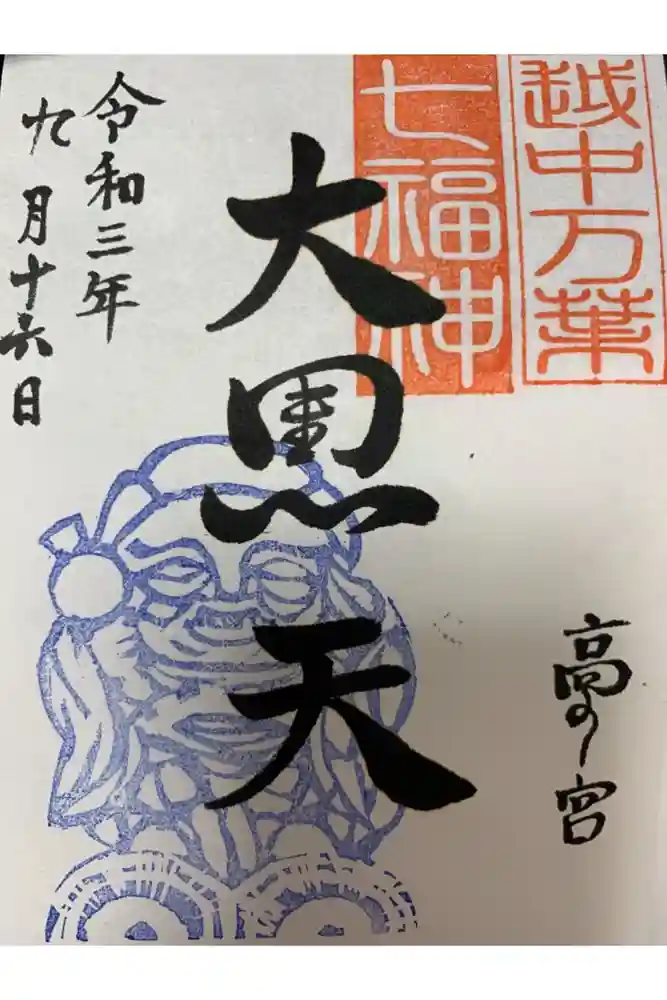 越中万葉
七福神
高の宮
大黒天
令和三年
九月十六日